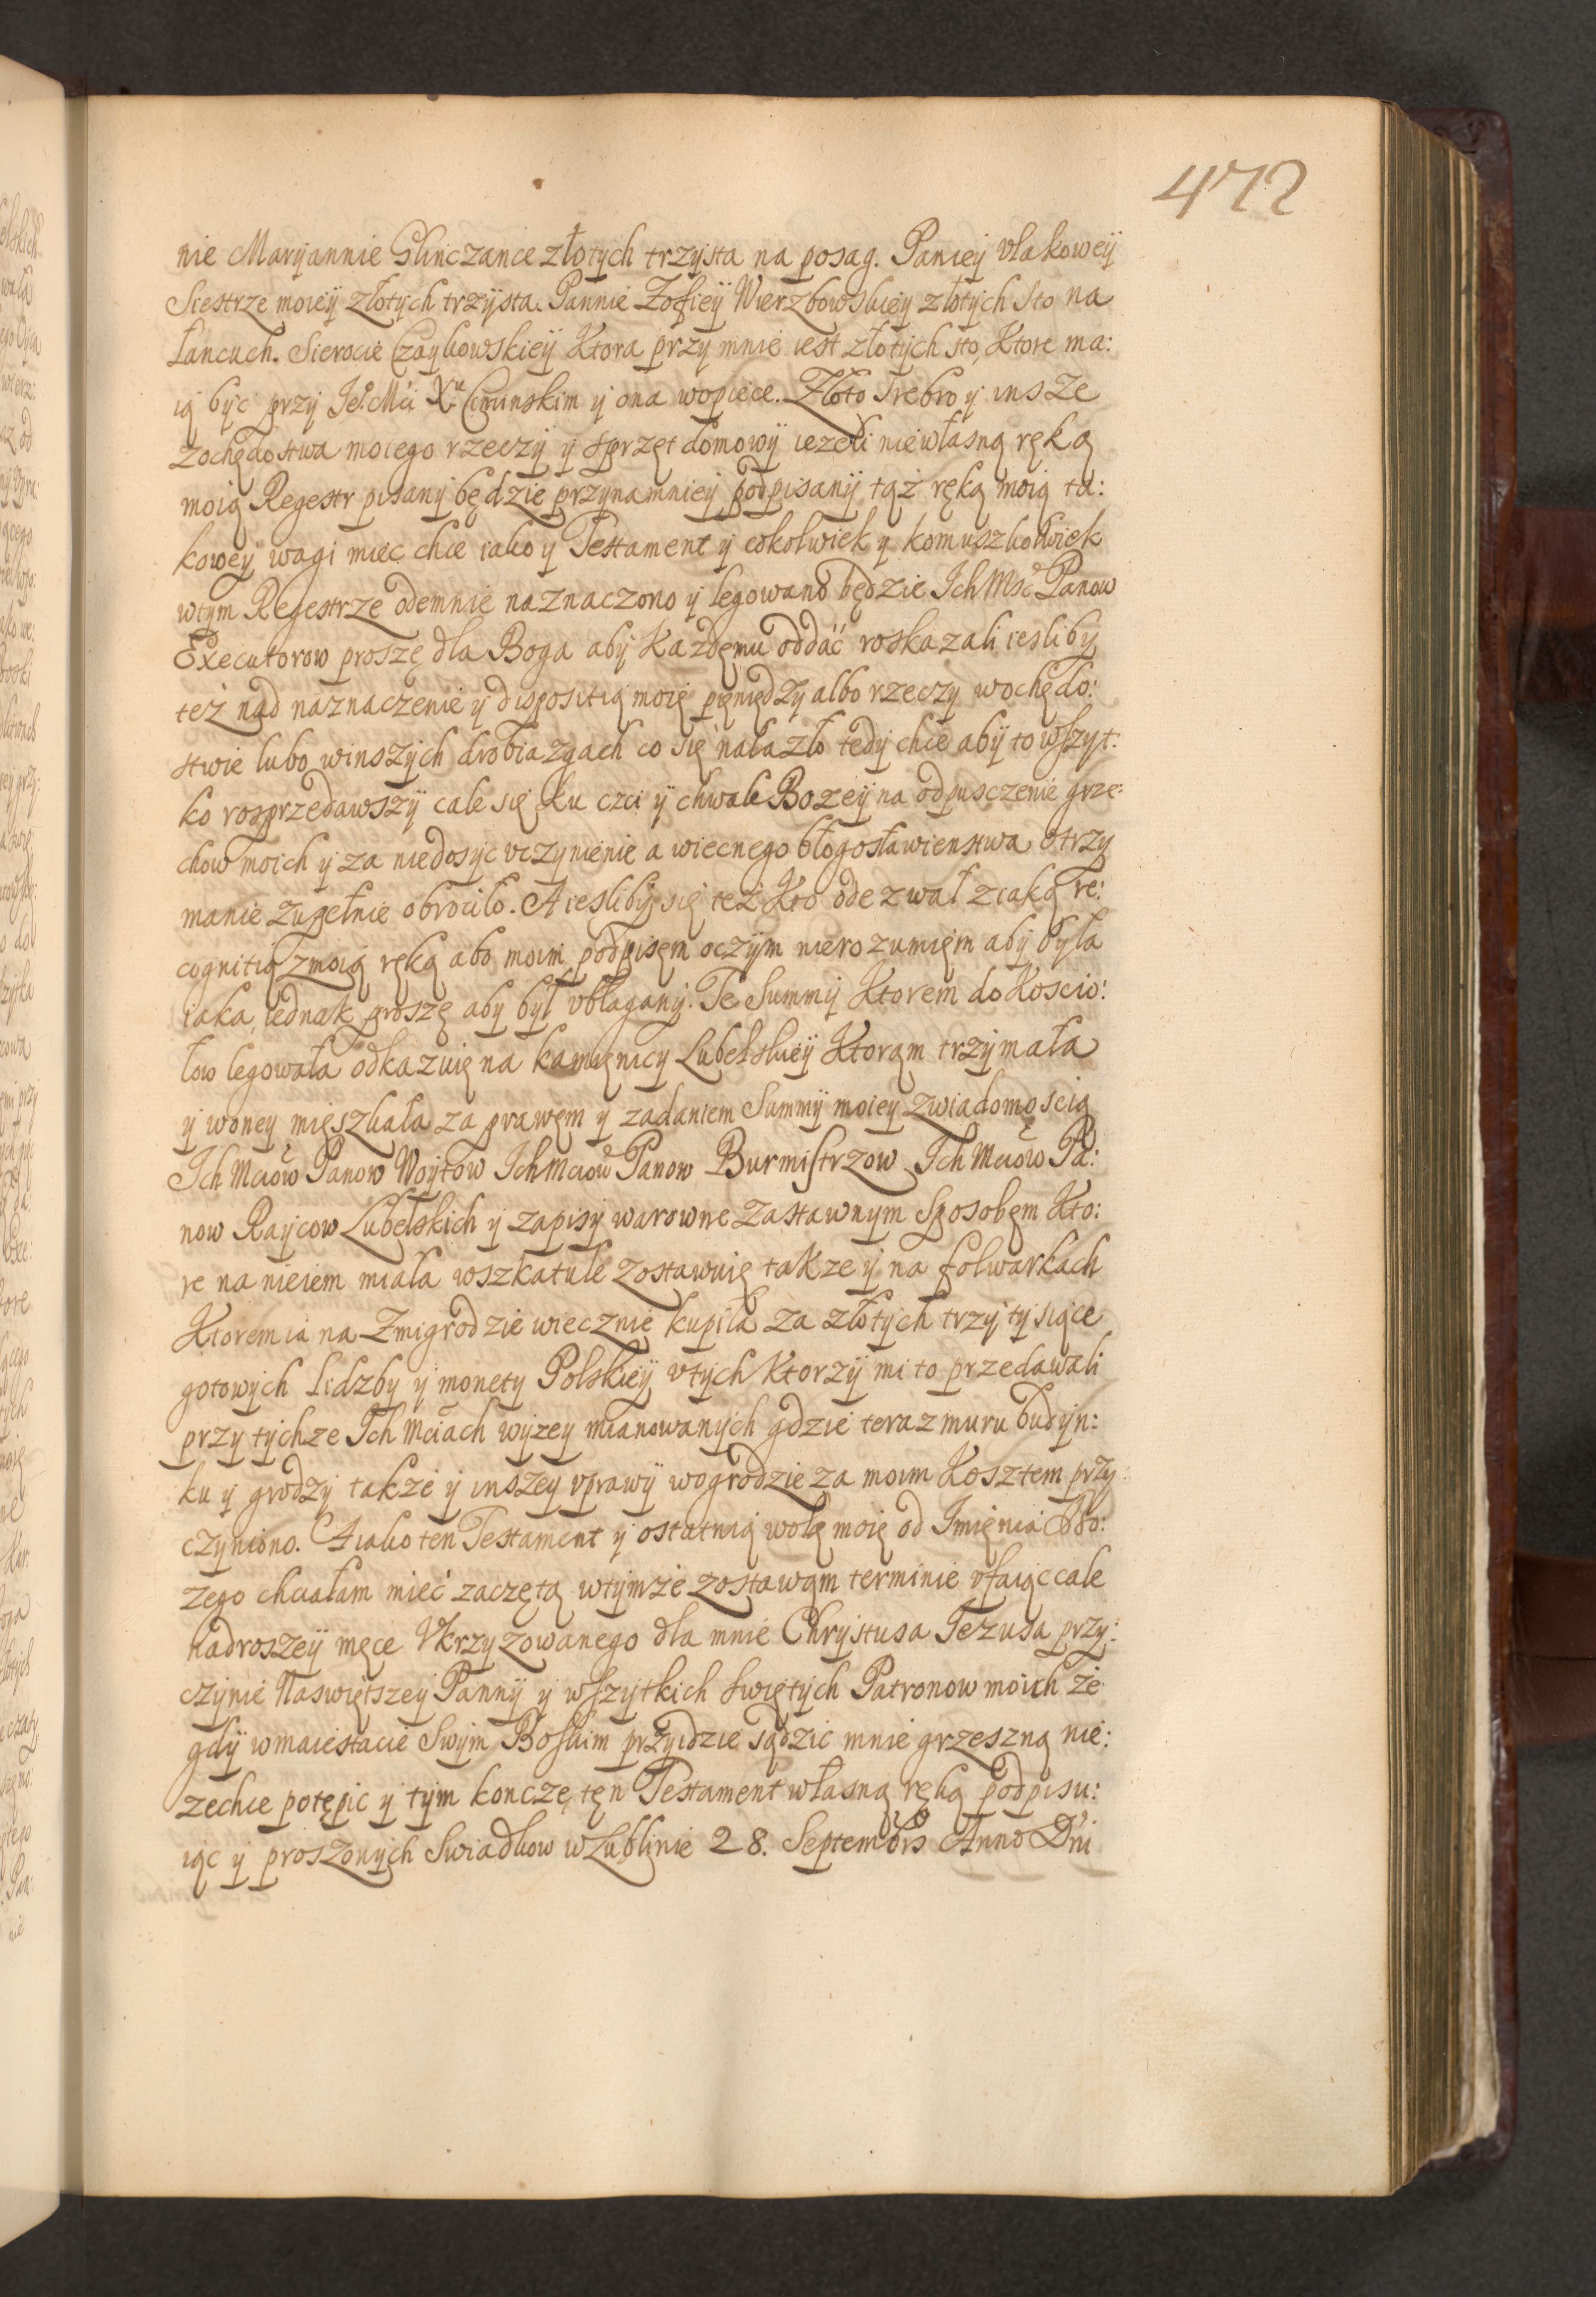 472
nie Maryannie Glinczance złotych trzysta na posag. Paniey Vłakoweÿ
Siestrze moieÿ złotych trzÿsta. Pannie Zofieÿ Wierzbowskieÿ złotych sto na
Łancuch. Sierocie Czaykowskieÿ Ktora przy mnie iest złotych sto, Ktore ma:
ią byc przy Je° Mći Xu Ciminskim y ona wopiece. Złoto srebro y insze
zochędostwa moiego rzeczÿ y sprzęt domowÿ iezeli niewłasną ręką
moią Regestr pisany będzie przynamnieÿ podpisanÿ tąż ręką moią ta:
koweÿ wagi miec chce iako y Testament y cokolwiek y komuszkolwiek
wtym Regestrze odemnie naznaczono y legowano będzie Ich Msć Panow
Executorow proszę dla Boga abÿ Kazdęmu oddać roskazali iesliby
też nad naznaczenie y dispositią moię pęnędzy albo rzeczy wochędo:
stwie lubo winszÿch drobiazgach co się nalazło tedÿ chce abÿ to wszÿt:
ko rosprzedawszÿ cale się ku czci ÿ chwale Bozeÿ na odpusczenie grze:
chow moich y za niedosÿc vczynienie a wiecnego błogosławienstwa otrzy
manie zupełnie obrociło. A ieslibÿ się też Kto odezwał ziaką re:
cognitią zmoią ręką abo moim podpisęm oczÿm nierozumięm abÿ była
iaka, iednak proszę aby był vbłaganÿ. Te Summÿ Ktorem do Koscio:
łow legowała odkazuię na kamięnicy Lubelskieÿ Ktorąm trzÿmała
y woney mięszkała za prawęm y zadaniem Summÿ moiey zwiadomęscią
Ich Mciow Panow Woytow Ich Mciow Panow Burmistrzow Ich Mciow Pa:
now Raÿcow Lubelskich y zapisÿ warowne zastawnym sposobęm Kto:
re na nieiem miała wszkatule zostawuię takze ÿ na folwarkach
Ktorem ia na Zmigrodzie wiecznie kupiła za złotych trzÿ tÿsiące
gotowÿch lidzby y monety Polskieÿ vtÿch Ktorzÿ mi to przedawali
przy tÿchze Ich Mciach wyzey mianowanÿch gdzie teraz muru budÿn:
ku y grodzÿ także ÿ inszey vprawÿ wogrodzie za moim Kosztem przy:
czyniono. A iako ten Testament y ostatnią wolę moię od Imięnia Bo:
zego chciałam mieć zaczętą wtÿmże zostawąm terminie vfaiąc cale
nadroszeÿ męce Vkrzyzowanego dla mnie Chrystusa Jezusa przy:
czynie Naswiętszeÿ Pannÿ y wszÿtkich swiętych Patronow moich że
gdÿ wmaiestacie Swÿm Boskim przyidzie sądzic mnie grzeszną nie:
zechce potępic y tÿm konczę tęn Testament własną ręką podpisu:
iąc y proszonÿch Swiadkow wLublinie 28. Septembrs Anno Dni